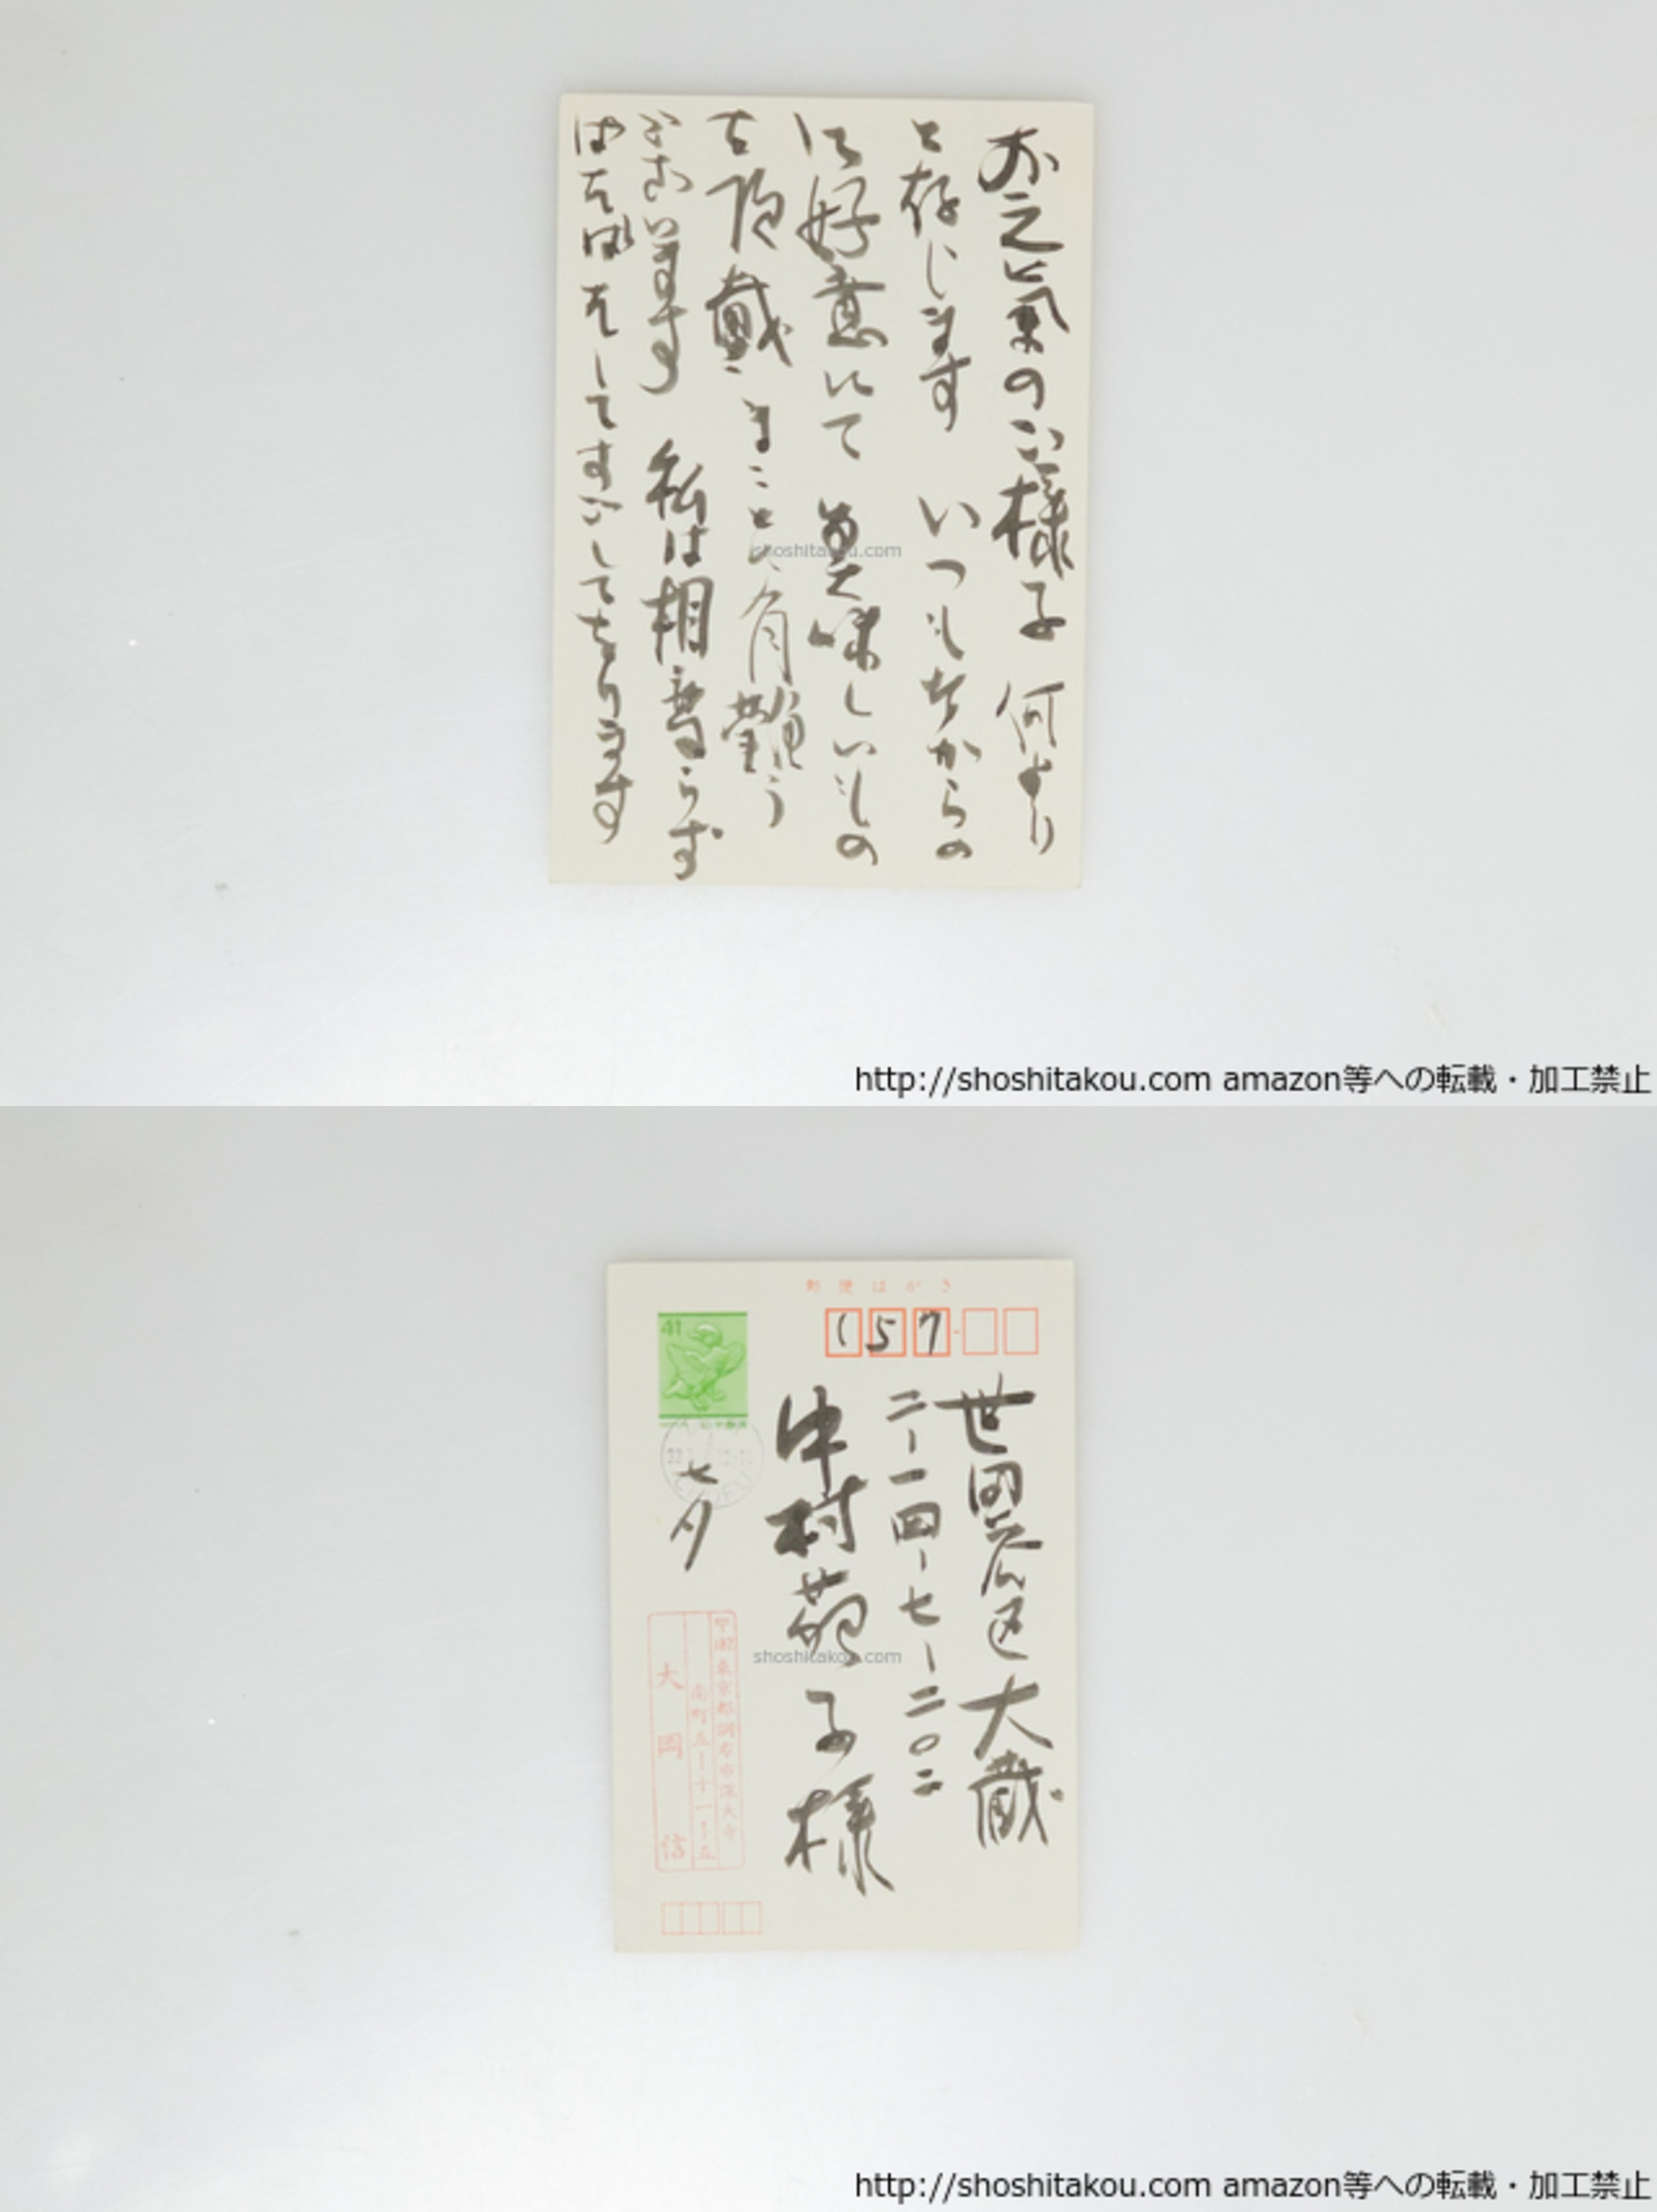 お元氣のご様子 何より
と存じます いつもながらの
ご好意にて 美味しいもの
を頂戴 まことに有難う
ございます 私は相変らず
ばたばたしてすごしております
shoshitakou.com
http://shoshitakou.com amazon等への転載・加工禁止
郵便はがき
157
41
世田谷区大蔵
二ー一四ー七ー二〇二
中村苑子様
七夕
東京都調布市深大寺
南町五ー十一ー五
大岡信
shoshitakou.com
http://shoshitakou.com amazon等への転載・加工禁止